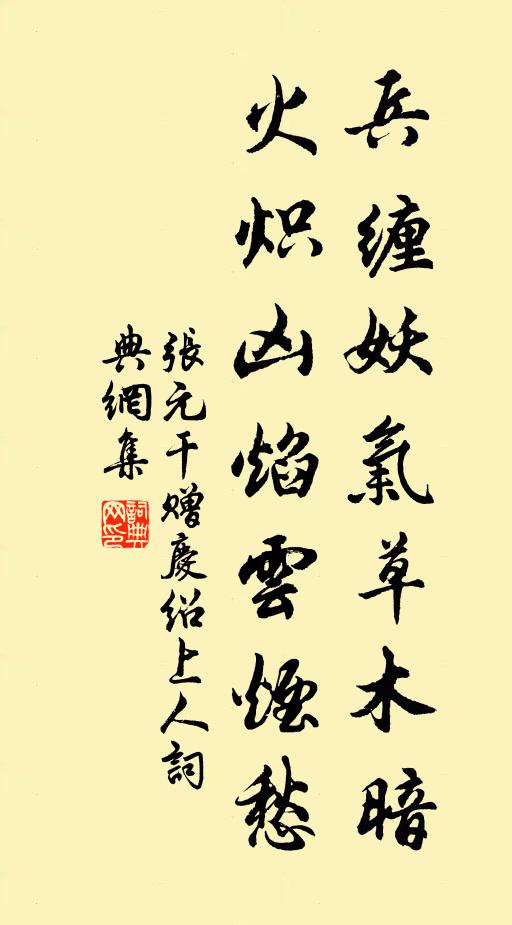 兵缠妖氣草木暗
火炽凶焰雲煙愁
張元干贈慶绍上人詞
典網集
詞典网印